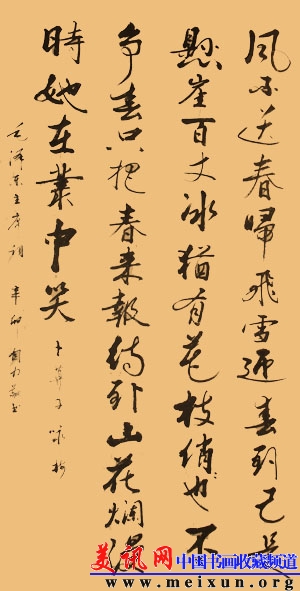 風雨送春歸飛雪迎春到已是
懸崖百丈冰猶有花枝俏〻也不
争春只把春来報待到山花爛漫
時她在叢中笑
卜算子咏梅
毛澤东主席詞 辛卯
美讯网 中国书画收藏频道
www.meixun.org